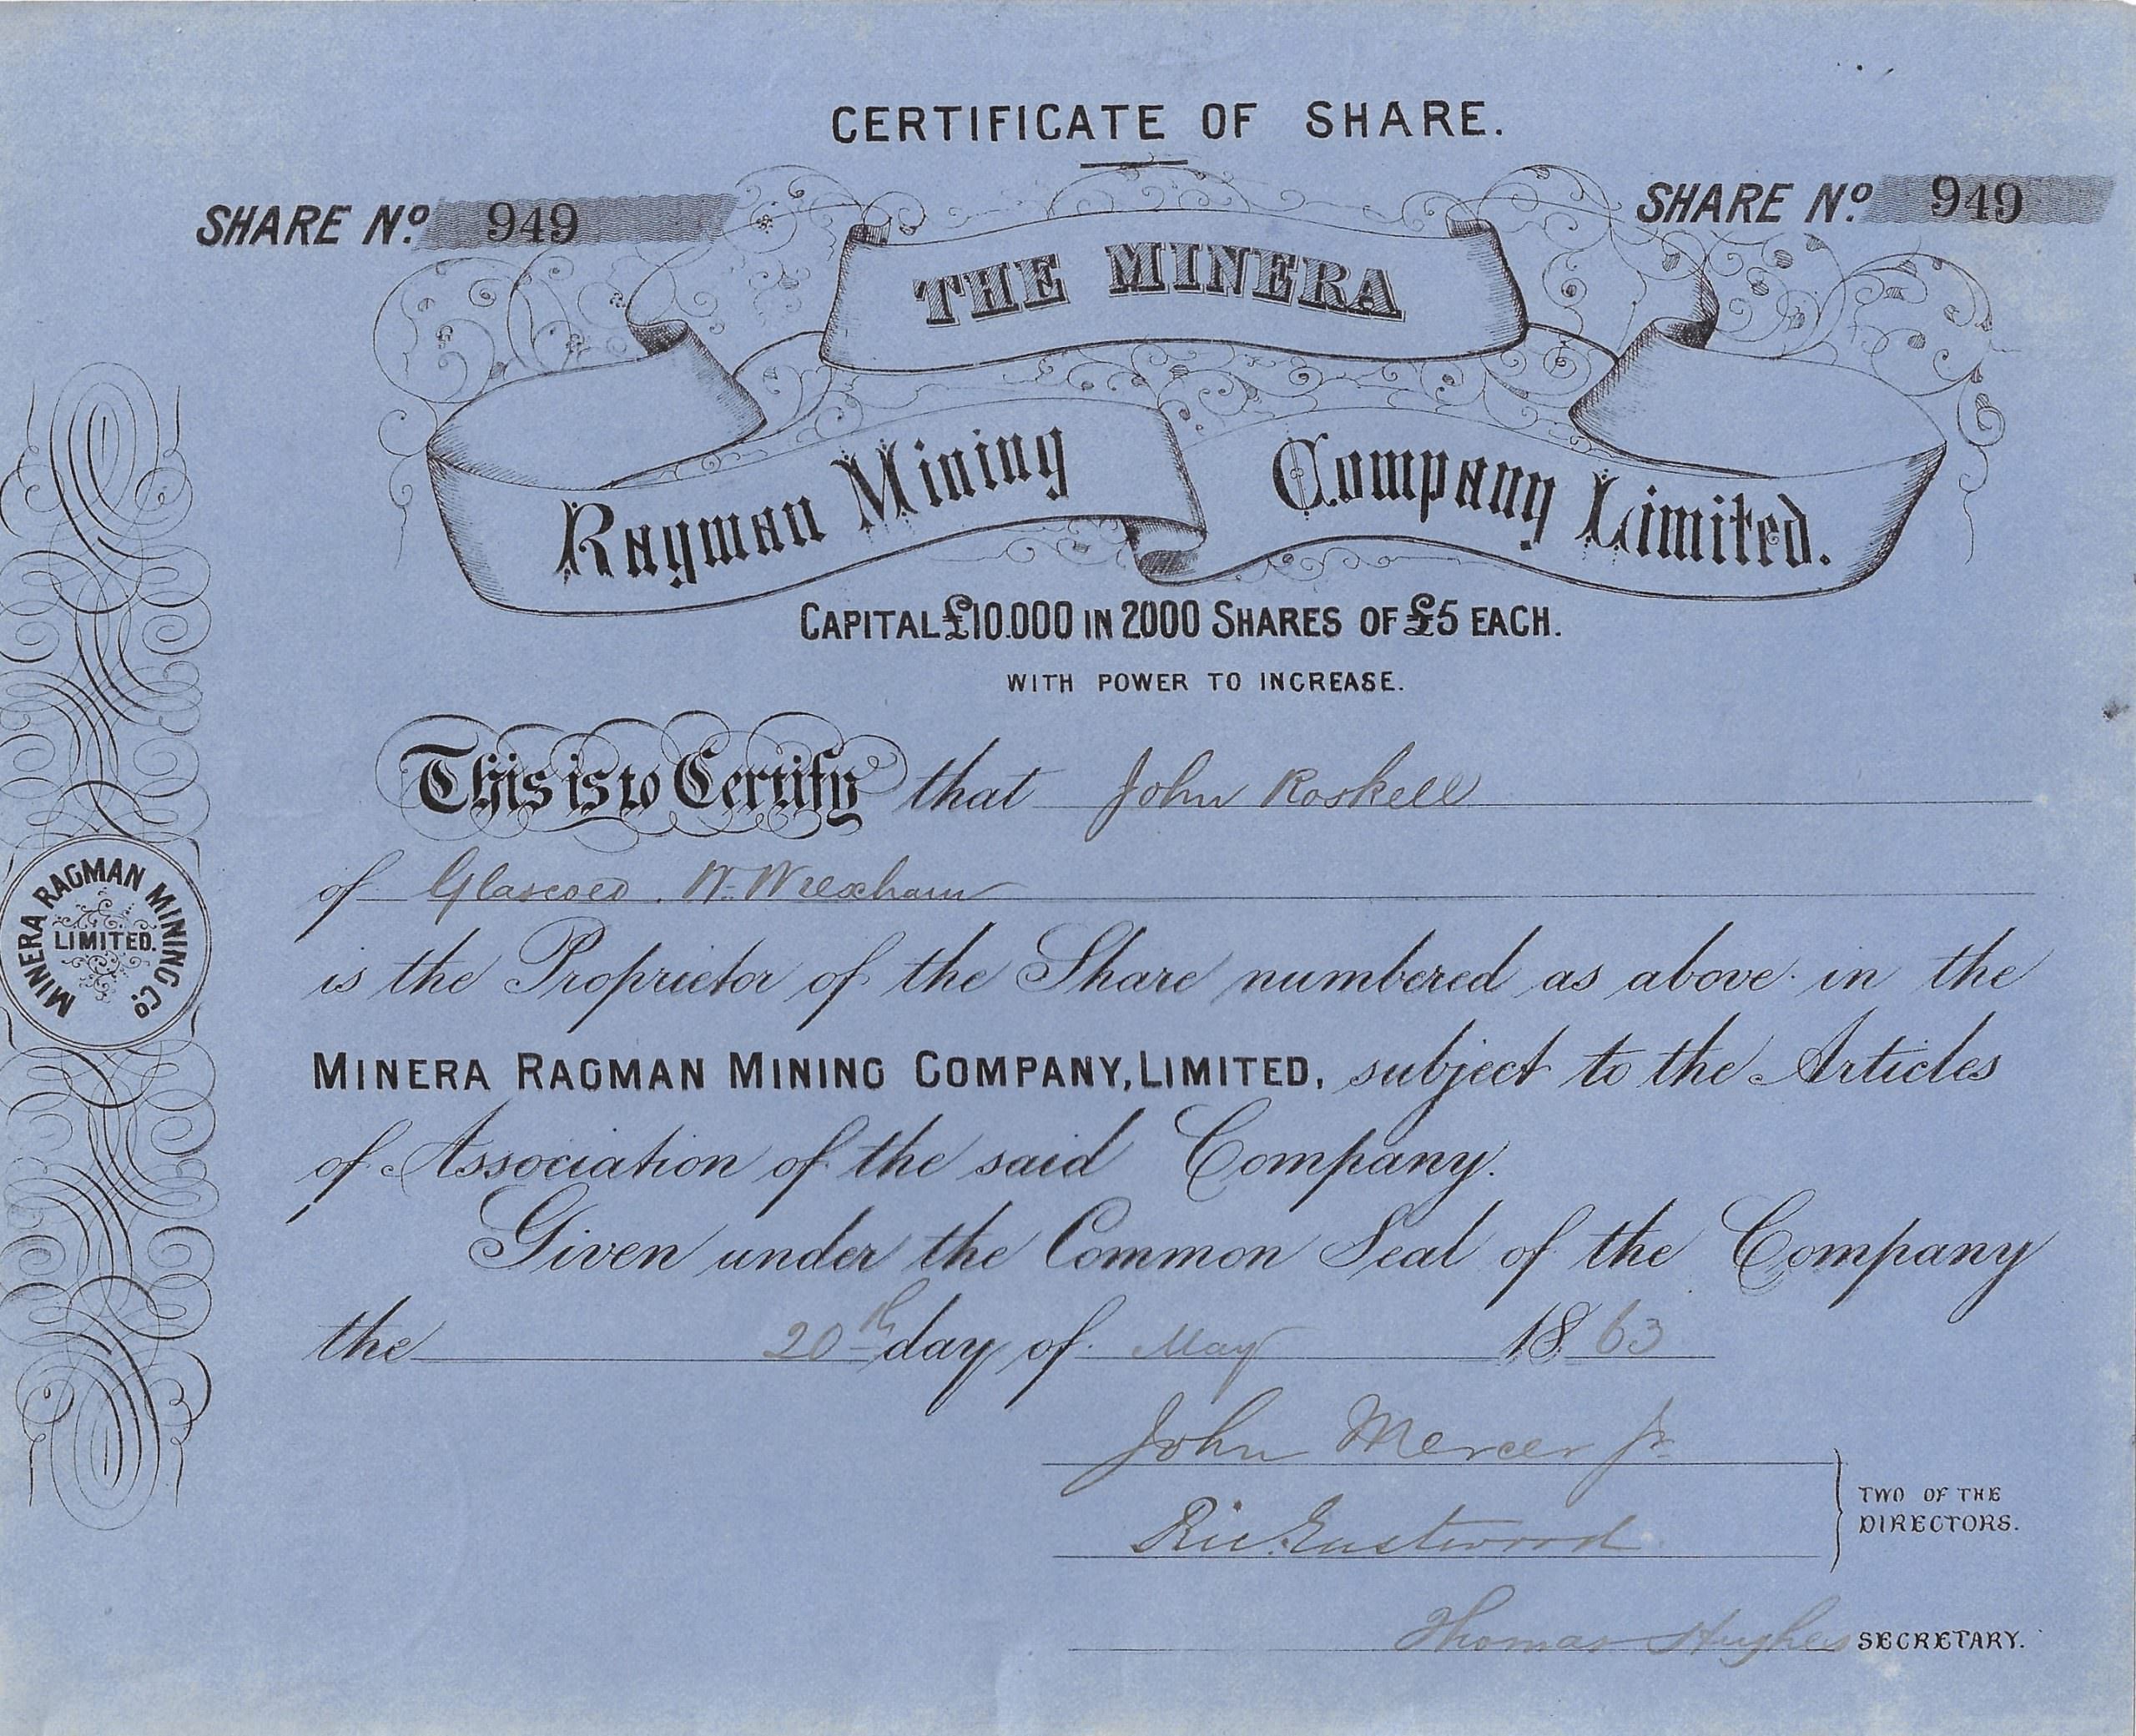 CERTIFICATE OF SHARE.
SHARE Nº 949
SHARE Nº 949
THE MINERA
Ragman Mining Company Limited.
CAPITAL £10.000 IN 2000 SHARES OF £5 EACH.
WITH POWER TO INCREASE.
This is to Certify that John Roskell
of Glascoed. Nr. Wrexham
is the Proprietor of the Share numbered as above in the
MINERA RAGMAN MINING COMPANY, LIMITED, subject to the Articles
of Association of the said Company.
Given under the Common Seal of the Company
the 20th day of May 1863
John Mercer Jr
Ric. Eastwood
TWO OF THE
DIRECTORS.
Thomas Hughes SECRETARY.
MINERA RAGMAN MINING Cº
LIMITED.